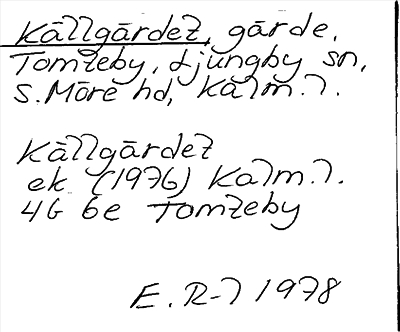 Källgärdet, gärde,
Tomteby, Ljungby sn,
S. Möre hd, Kalm. l.
Källgärdet
ek (1976) Kalm. l.
4G 6e Tomteby
E. R-l 1978